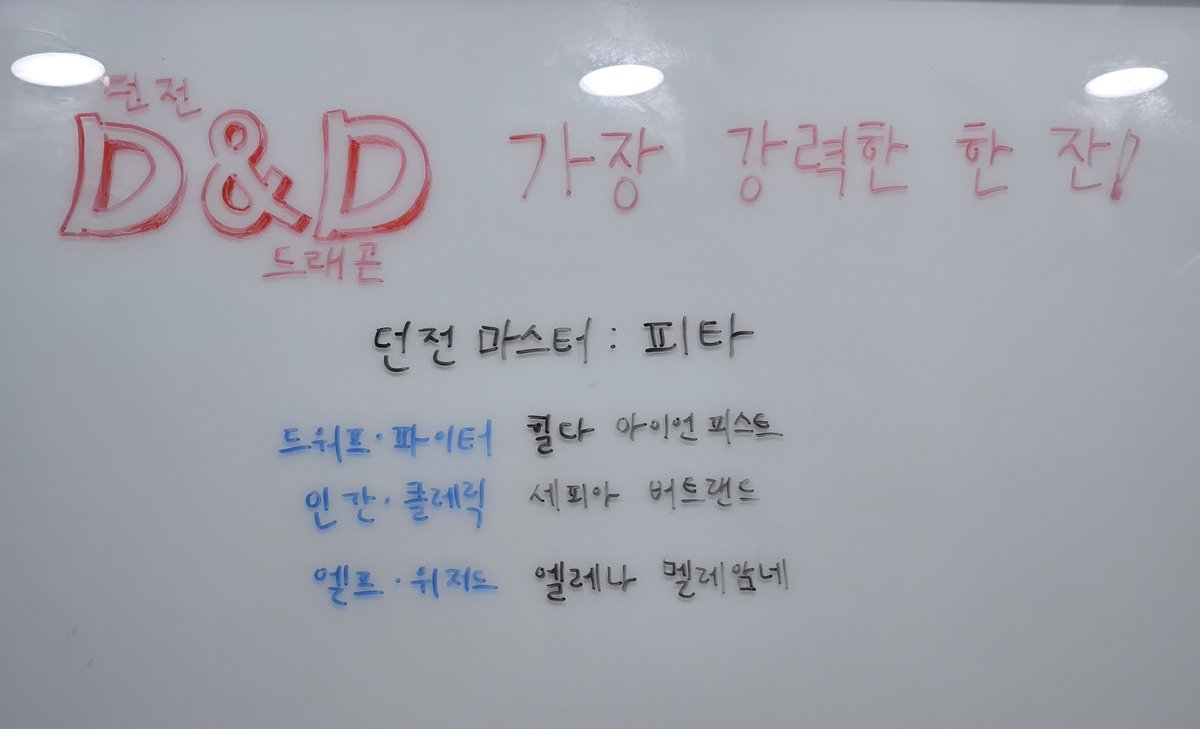 던전
D&D 가장 강력한 한 잔!
드래곤
던전 마스터 : 피타
드워프·파이터 힐다 아이언피스트
인간·클레릭 세피아 버트랜드
엘프·위저드 엘레나 멜레암네